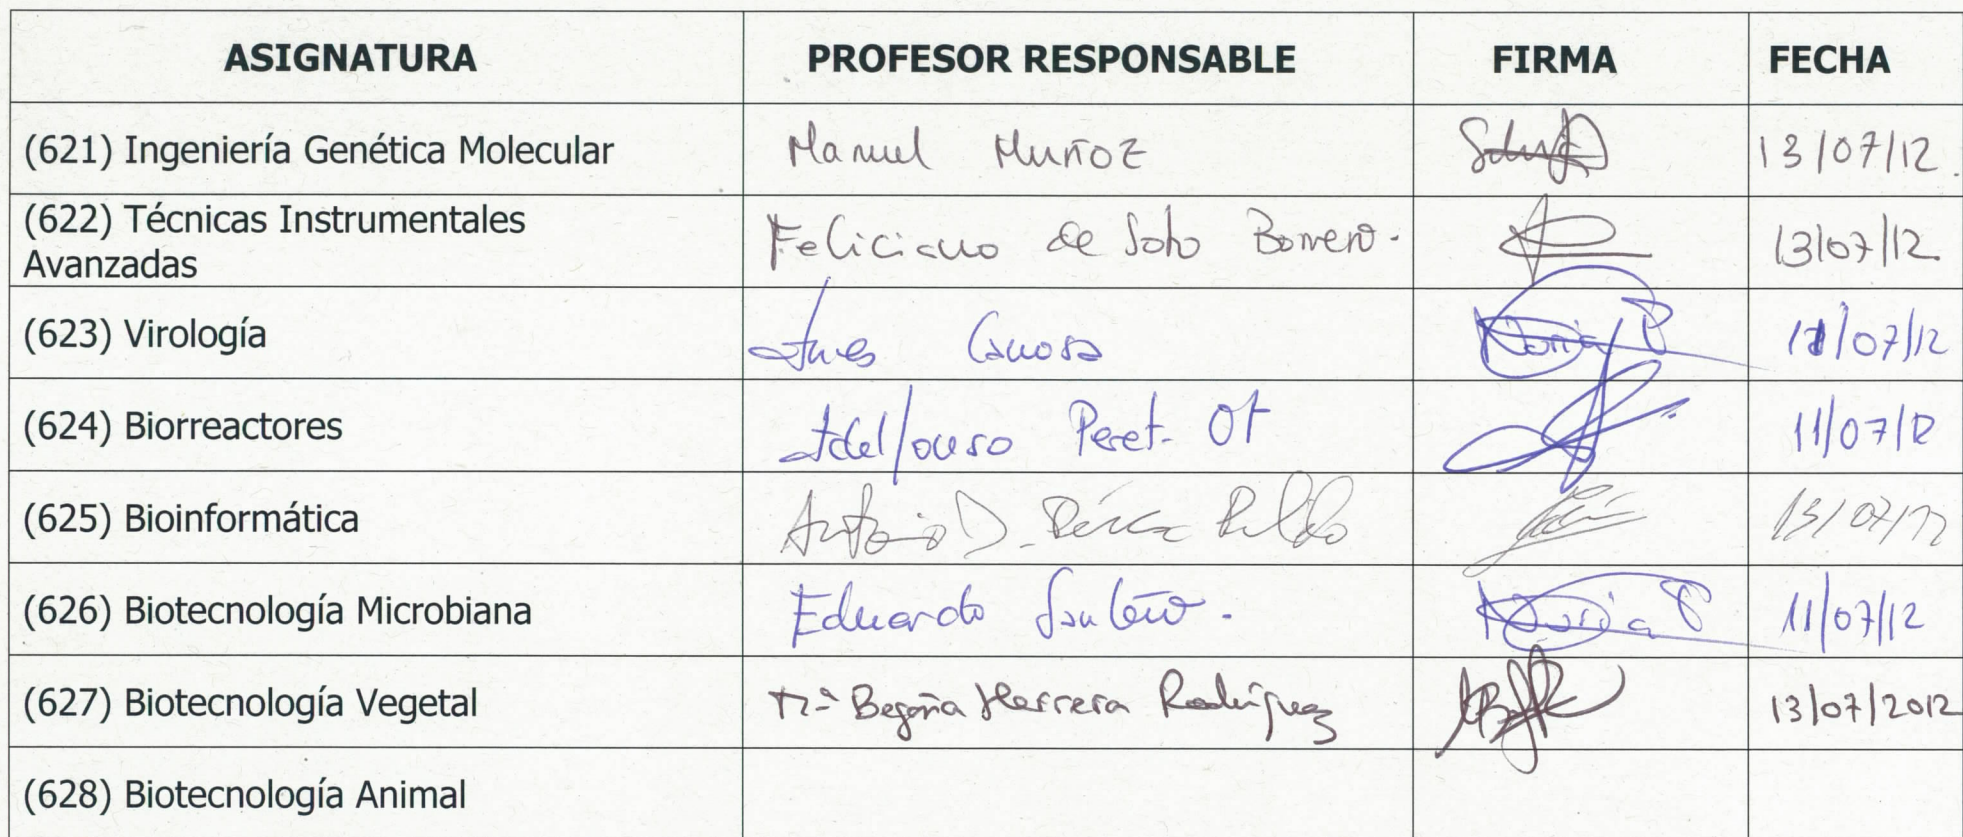 ASIGNATURA PROFESOR RESPONSABLE FIRMA FECHA
(621) Ingeniería Genética Molecular Manuel Muñoz 13/07/12.
(622) Técnicas Instrumentales
Avanzadas Feliciano de Soto Borrero. 13/07/12
(623) Virología Ines Canosa /07/12
(624) Biorreactores Idelfonso Peret 11/07/12
(625) Bioinformática Antonio J. Pérez Pulido 13/07/12
(626) Biotecnología Microbiana Eduardo Santero. 11/07/12
(627) Biotecnología Vegetal Mª Begoña Herrera Rodríguez 13/07/2012
(628) Biotecnología Animal